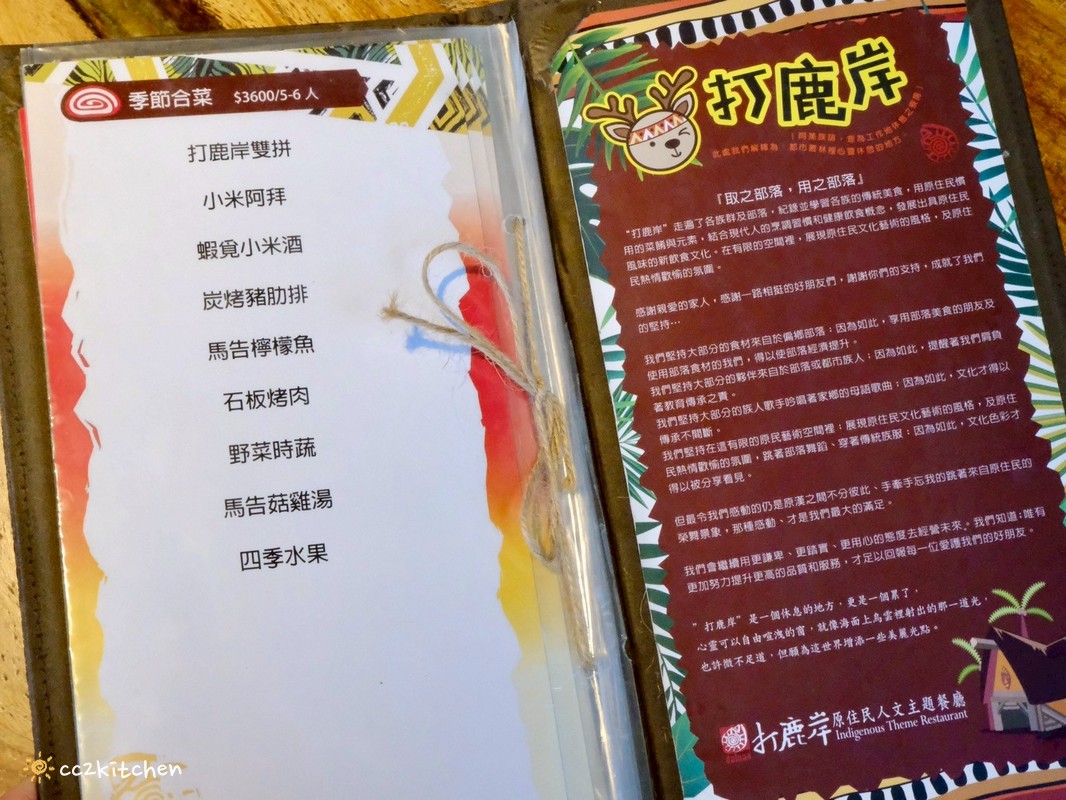 季節合菜 $3600/5-6 人
打鹿岸雙拼
小米阿拜
蝦覓小米酒
炭烤豬肋排
馬告檸檬魚
石板烤肉
野菜時蔬
馬告菇雞湯
四季水果
打鹿岸
『取之部落，用之部落』
“打鹿岸”走遍了各族群及部落，紀錄並學習各族的傳統美食，用原住民慣
用的菜餚與元素，結合現代人的烹調習慣和健康飲食概念，發展出具原住民
風味的新飲食文化。在有限的空間裡，展現原住民文化藝術的風格，及原住
民熱情歡愉的氛圍。
感謝親愛的家人，感謝一路相挺的好朋友們，謝謝你們的支持，成就了我們
的堅持…
我們堅持大部分的食材來自於偏鄉部落；因為如此，享用部落美食的朋友及
使用部落食材的我們，得以使部落經濟提升。
我們堅持大部分的夥伴來自於部落或都市族人；因為如此，提醒著我們肩負
著教育傳承之責。
我們堅持大部分的族人歌手吟唱著家鄉的母語歌曲；因為如此，文化才得以
傳承不間斷。
我們堅持在這有限的原民藝術空間裡；展現原住民文化藝術的風格，及原住
民熱情歡愉的氛圍，跳著部落舞蹈、穿著傳統族服；因為如此，文化色彩才
得以被分享看見。
但最令我們感動的仍是原漢之間不分彼此、手牽手忘我的跳著來自原住民的
榮舞景象，那種感動、才是我們最大的滿足。
我們會繼續用更謙卑、更踏實、更用心的態度去經營未來。我們知道；唯有
更加努力提升更高的品質和服務，才足以回報每一位愛護我們的好朋友。
”打鹿岸”是一個休息的地方，更是一個累了，
心靈可以自由喧洩的窗，就像海面上烏雲裡射出的那一道光，
也許微不足道，但願為這世界增添一些美麗光點。
打鹿岸原住民人文主題餐廳
Indigenous Theme Restaurant
cc2kitchen